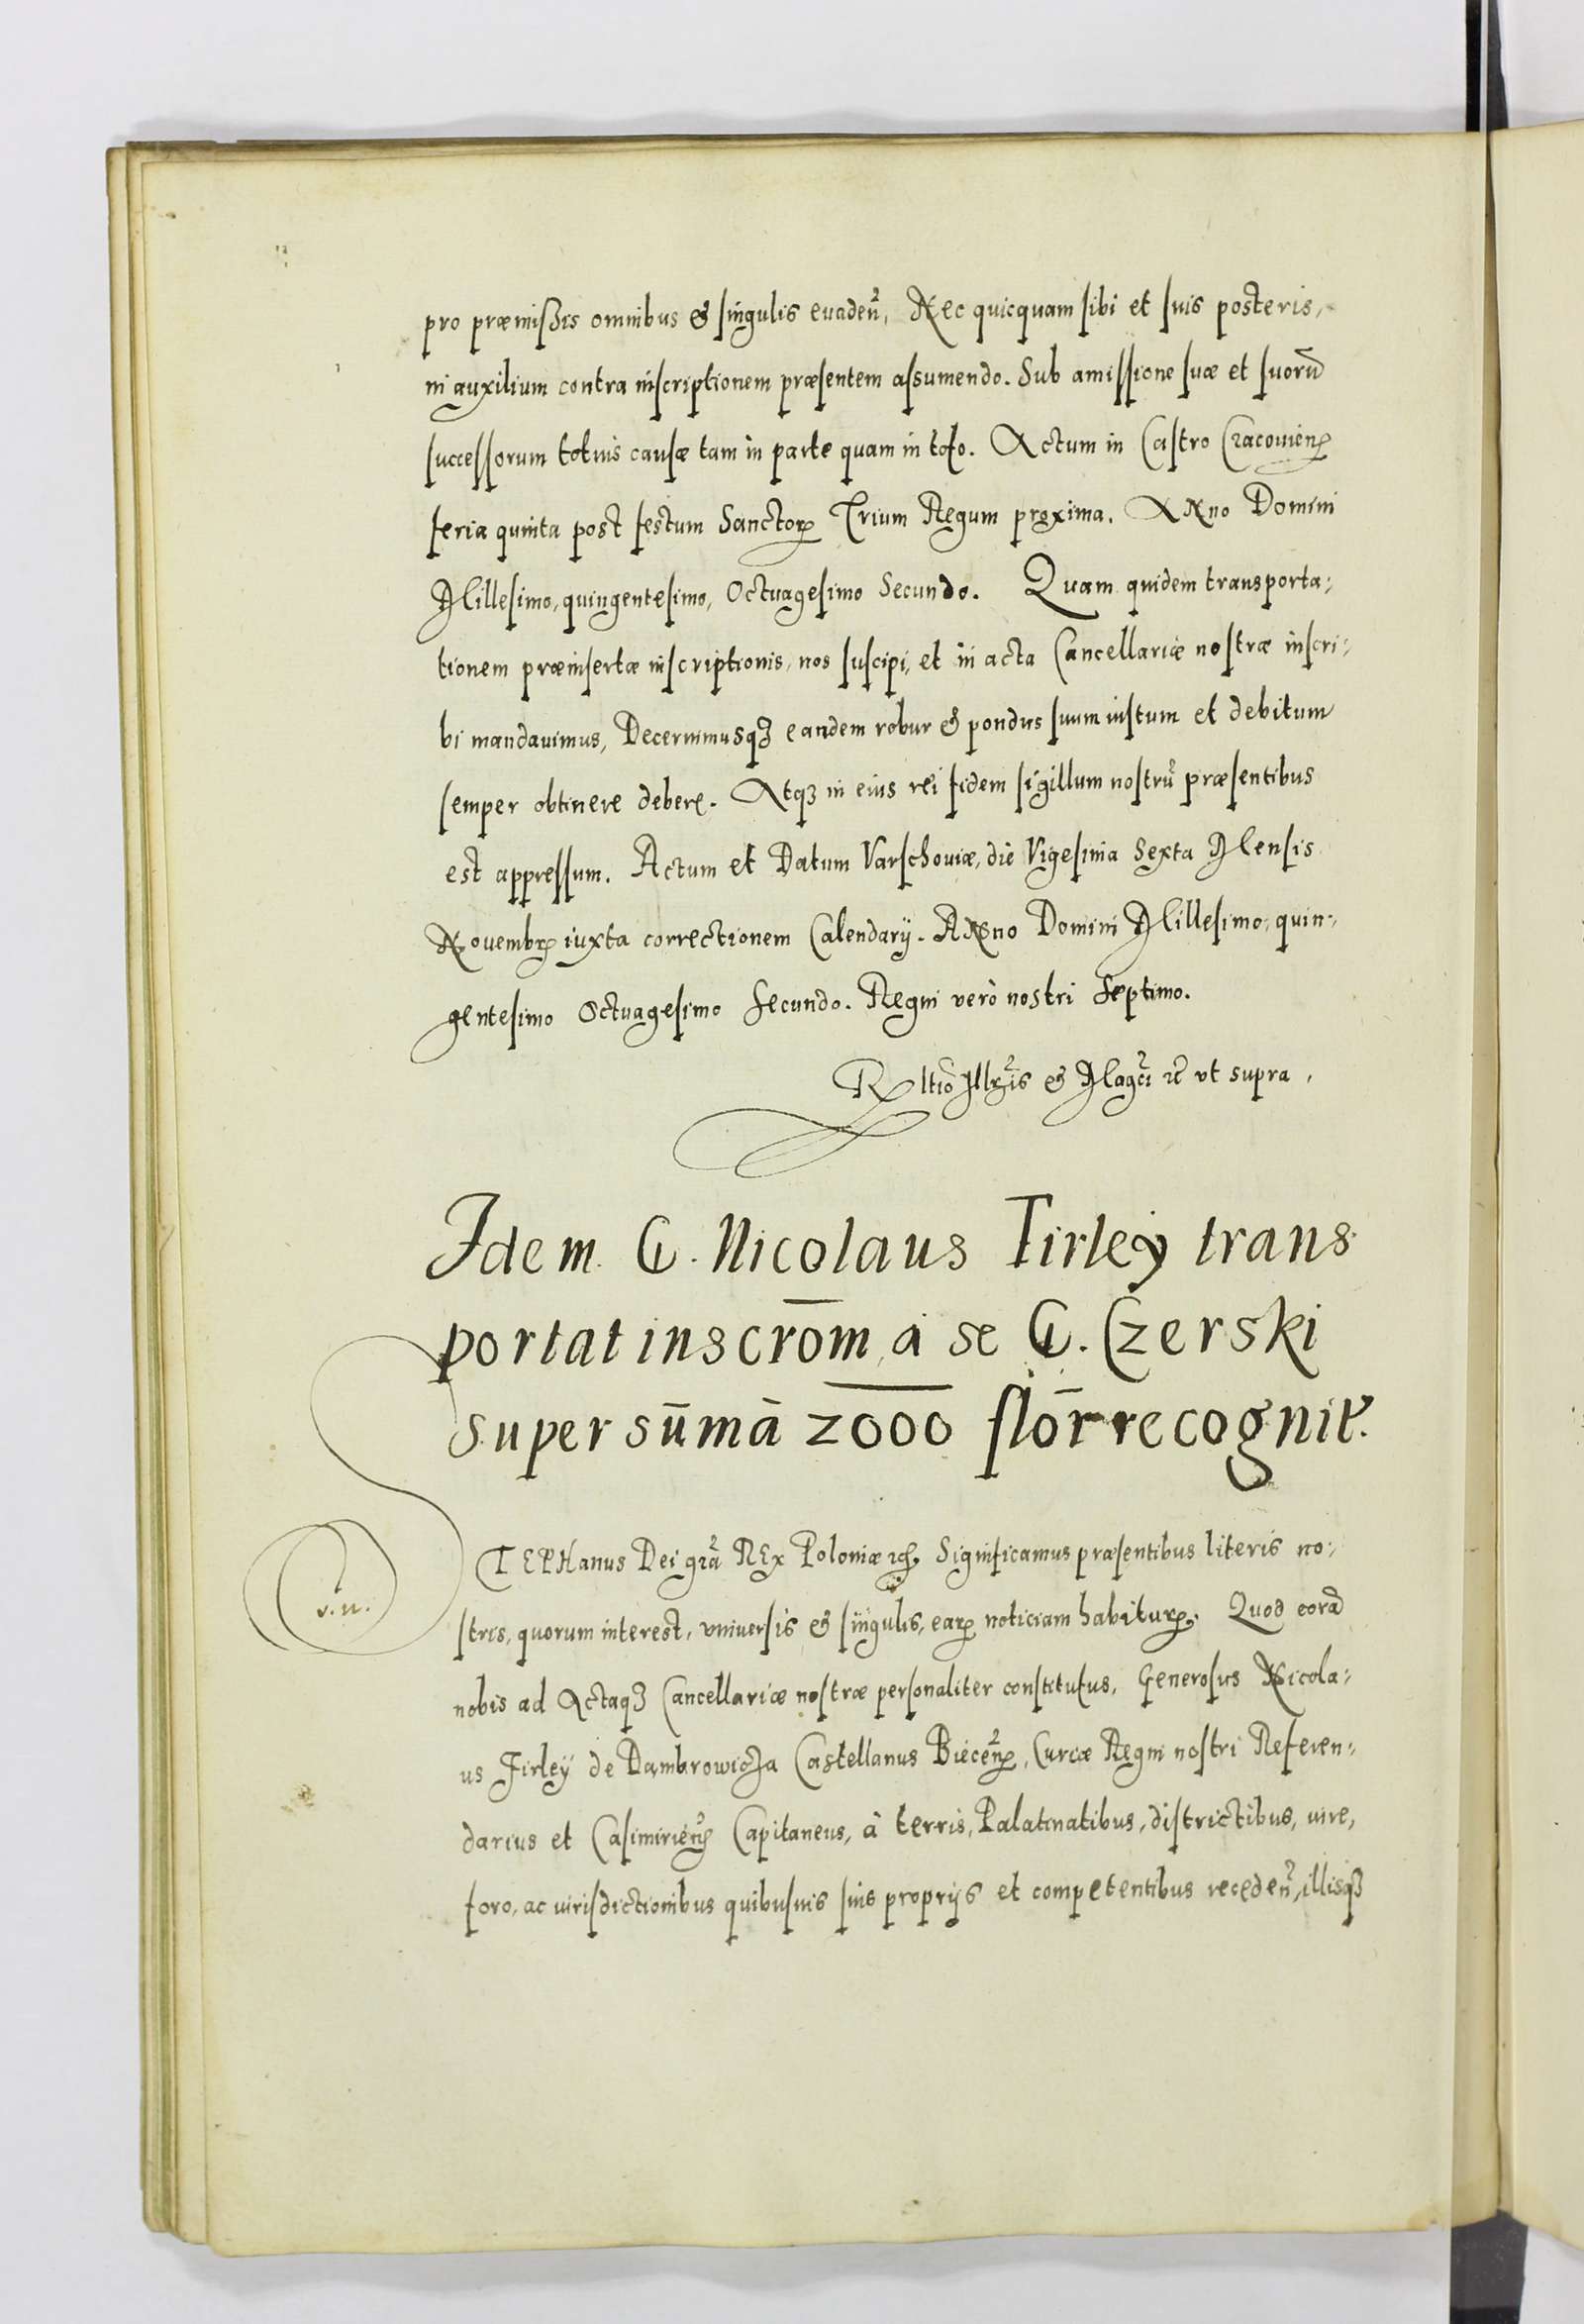 pro præmissis omnibus & singulis evaden̄, Nec quicquam sibi et suis posteris,
in auxilium contra inscriptionem præsentem assumendo. Sub amissione suæ et suorū
successorum totius causæ tam in parte quam in toto. Actum in Castro Cracovien̄
feria quinta post festum Sanctor Trium Regum proxima. ANno Domini
Millesimo, quingentesimo, Octuagesimo Secundo. Quam quidem transporta:
tionem præinsertæ inscriptionis, nos suscipi, et in acta Cancellariæ nostræ inscri:
bi mandavimus, Decernimusqꝫ eandem robur & pondus suum iustum et debitum
semper obtinere debere. Atqꝫ in eius rei fidem sigillum nostrū præsentibus
est appressum. Actum et Datum Varschoviæ, die Vigesima Sexta Mensis
Novembr iuxta correctionem Calendarij. ANno Domini Millesimo, quin:
gentesimo Octuagesimo Secundo. Regni verò nostri Septimo.
Rltio Illris & Magci ꝛc̄ ut supra.
Idem G. Nicolaus Firley trans
portat inscrōm a se G. Czerski
super sūmā 2000 flōr recognit.
STEPHanus Dei grā REx Poloniæ ꝛc. Significamus præsentibus literis no:
stris, quorum interest, universis & singulis, ear noticiam habitur. Quod corā
nobis ad Actaqꝫ Cancellariæ nostræ personaliter constitutus, Generosus Nicola:
us Firley de Dambrowicza Castellanus Biecen̄, Curiæ Regni nostri Referen:
darius et Casimirien̄ Capitaneus, à terris, Palatinatibus, districtibus, iure,
foro, ac iurisdictionibus quibusvis suis proprijs et competentibus receden̄, illisqꝫ